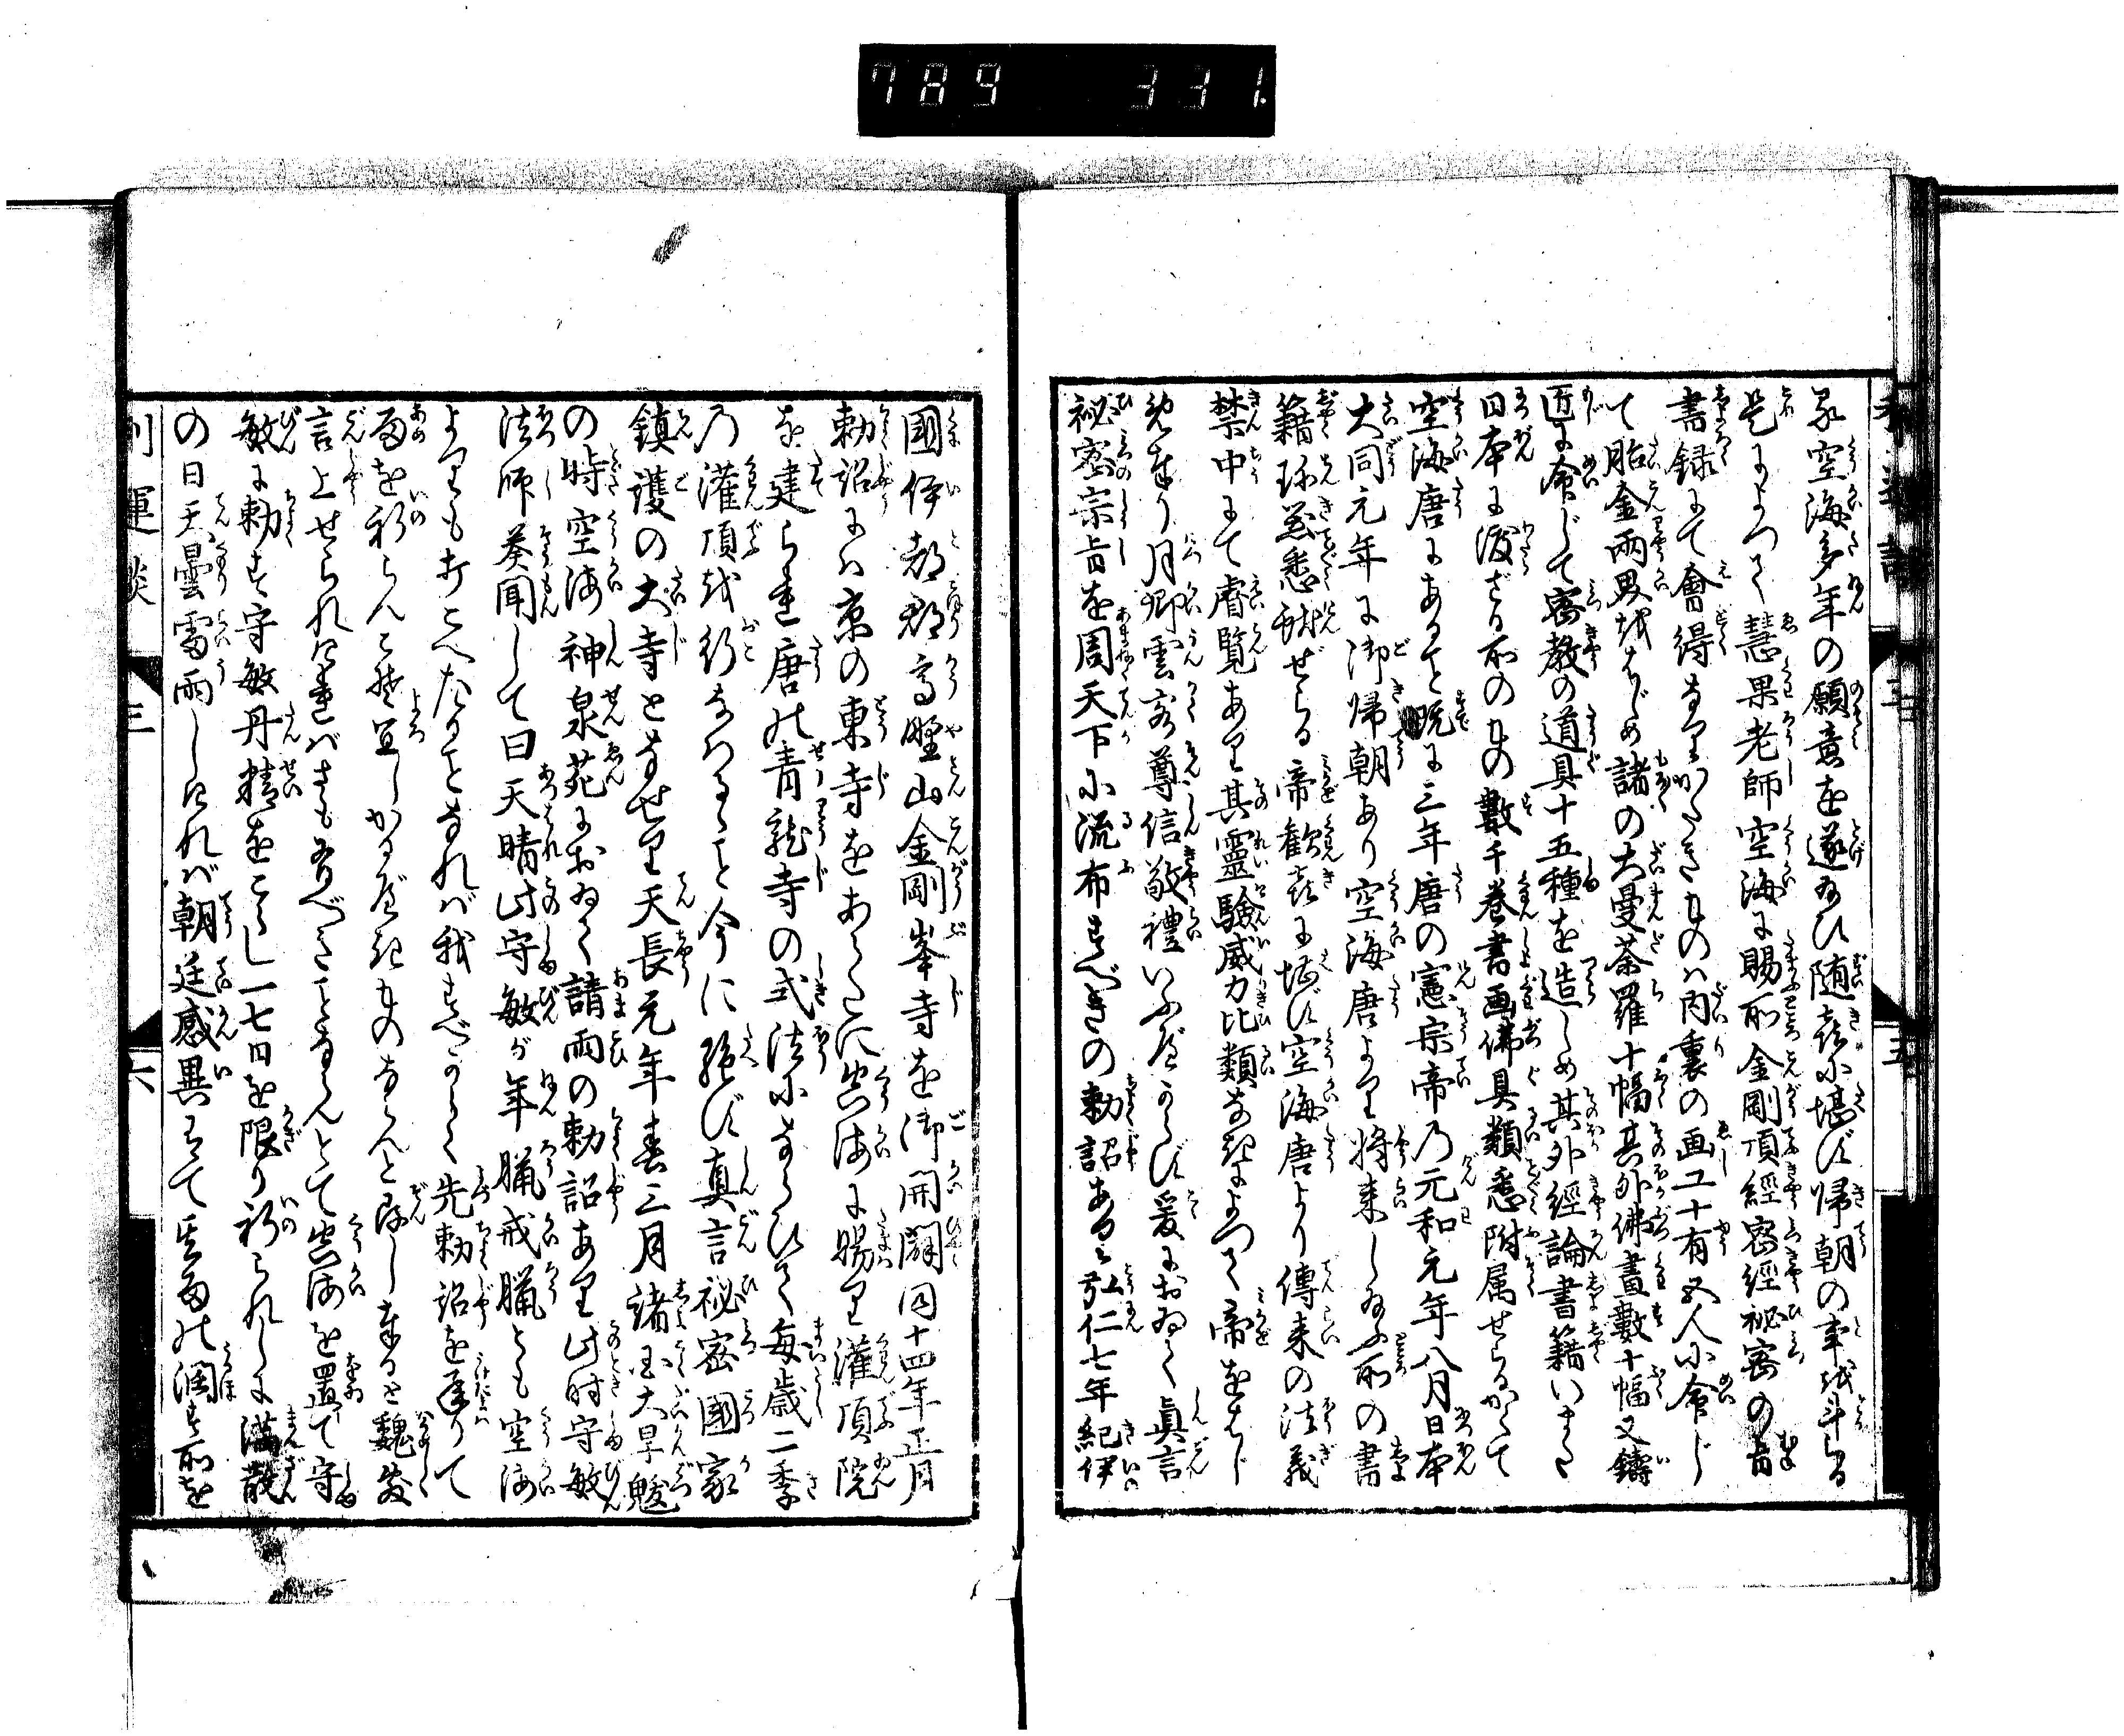 789 331.
空海多年の願意を遂給ひ随喜に堪ず帰朝の事を計らる
是によつて慧果老師空海に賜所金剛頂經密經秘密の旨
書録にて會得なりがたきものハ内裏の画工十有又人に命じ
て胎金兩界をはじめ諸の大曼荼羅十幅其外佛畫數十幅又鑄
匠に命じて密教の道具十五種を造しめ其外經論書籍いまだ
日本に渡ざる所のもの數千巻書画佛具類悉附属せらるかくて
空海唐にあること既に三年唐の憲宗帝乃元和元年八月日本
大同元年に御帰朝あり空海唐より将来し給ふ所の書
籍珎器悉献ぜらる帝歓喜に堪ず空海唐より傳来の法義
禁中にて睿覧あり其靈驗威力比類なきによつて帝をはじ
め奉り月卿雲客尊信敬禮いふばからず爰におゐて眞言
秘密宗旨を周天下に流布すべきの勅詔ある弘仁七年紀伊
國伊都郡高野山金剛峯寺を御開闢同十四年正月
勅詔にハ京の東寺をあらたに空海に賜り灌頂院
を建られ唐の青龍寺の式法にならひて毎歳二季
乃灌頂を行なわるゝこと今に絶ず真言秘密國家
鎮護の大寺となせり天長元年春三月諸国大旱魃
の時空海神泉苑におゐて請雨の勅詔あり此時守敏
法師奏聞して曰天晴此守敏が年臈戒臈とも空海
よりもおこへたることなれバ我すべからく先勅詔を承りて
雨を祈らんこそ宜しかるべきものならんと辞し奉ると魏々
言上せられけれバさも有べきことならんとて空海を置て守
敏に勅す守敏丹精をこらし一七日を限り祈られしに満散
の日天曇雷雨しけれバ朝廷感異して其雨の潤す所を
利運談
三
五
六